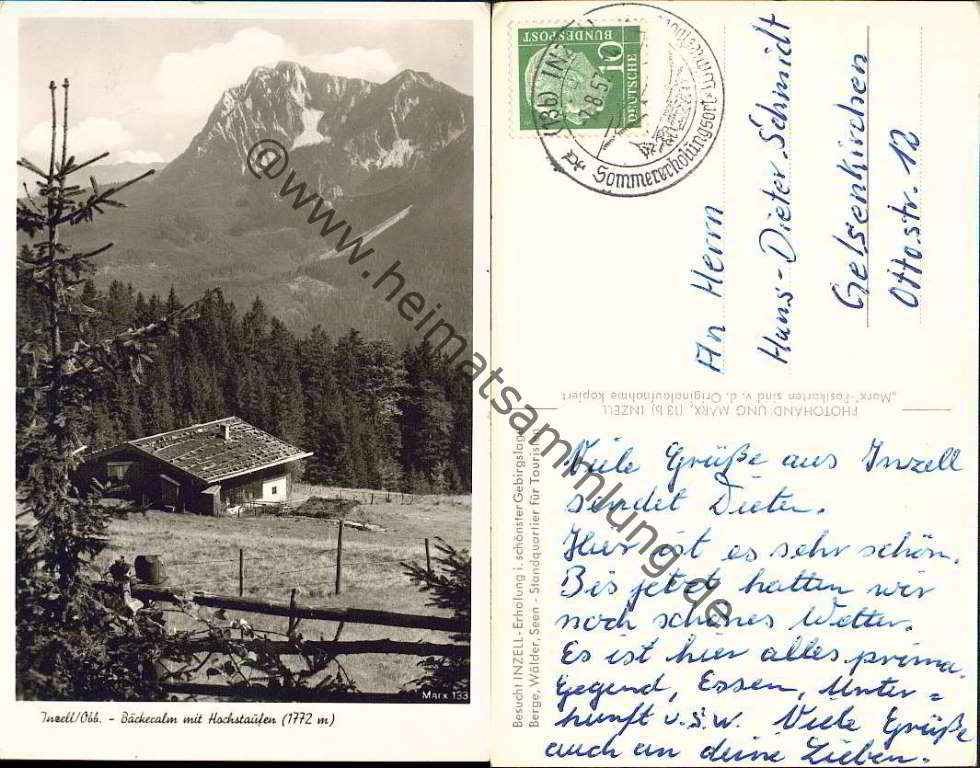 Marx 133
Inzell/Obb. - Bäckecalm mit Hochstaufen (1772 m)
@www.heimatsammlung.de
DEUTSCHE
BUNDESPOST
10
(13b) INZ
8.57
Sommererholungsort
An Herrn
Hans-Dieter Schmidt
Gelsenkirchen
Ottostr. 12
PHOTOHANDLUNG MARX, (13 b) INZELL
„Marx"-Postkarten sind v. d. Originalaufnahme kopiert
Besucht INZELL - Erholung i. schönster Gebirgslage
Berge, Wälder, Seen - Standquartier für Touristen
Viele Grüße aus Inzell
sendet Dieter.
Hier ist es sehr schön.
Bis jetzt hatten wir
noch schönes Wetter.
Es ist hier alles prima.
Gegend, Essen, Unter=
kunft u.s.w. Viele Grüße
auch an deine Lieben.